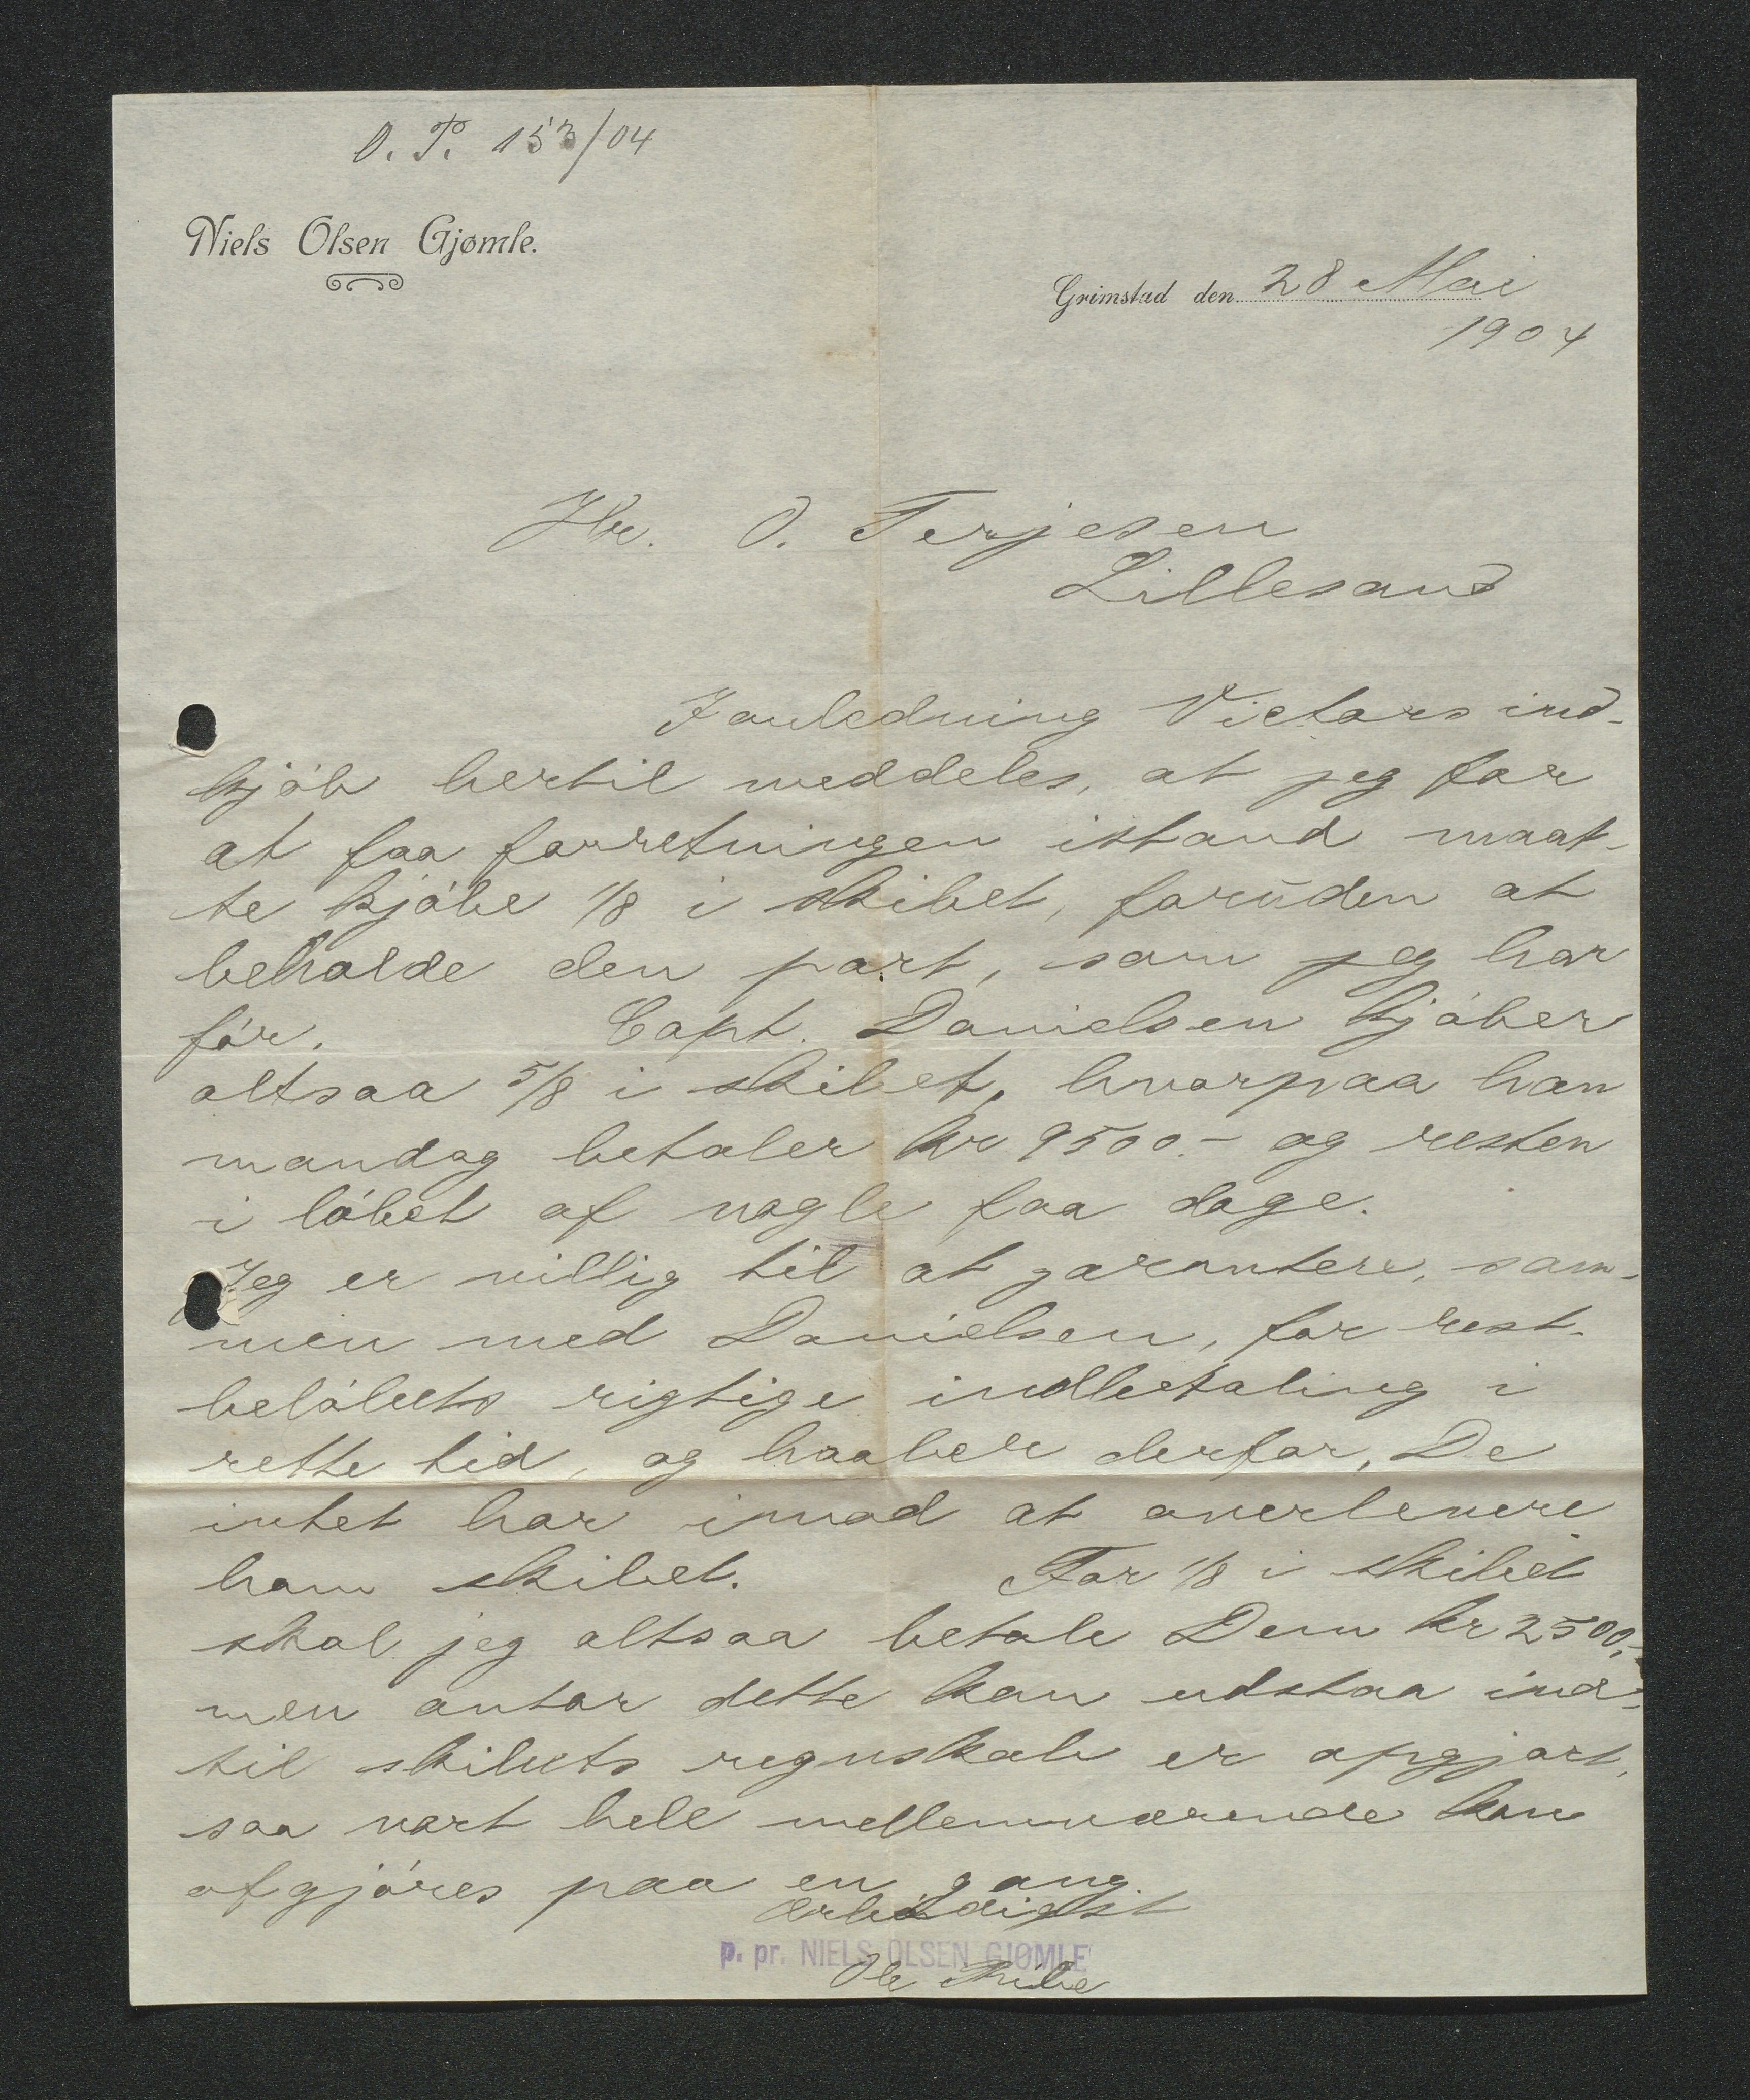 O. T. 153/04
Niels Olsen Gjømle.
Grimstad den 28 Mai
1904
Hr. O. Terjesen
Lillesand
I anledning Victors ind-
kjöb hertil meddeles, at jeg for
at faa forretningen istand maat-
te kjöbe 1/8 i skibet, foruden at
beholde den part, som jeg har
för. Capt. Danielsen kjöber
altsaa 5/8 i skibet, hvorpaa han
mandag betaler kr 9500.- og resten
i löbet af nogle faa dage.
Jeg er villig til at garantere, sam-
men med Danielsen, for rest-
belöbets rigtige indbetaling i
rette tid, og haaber derfor, De
intet har imod at overlevere
ham skibet. For 1/8 i skibet
skal jeg altsaa betale Dem kr 2500,-
men antar dette kan udstaa ind-
til skibets regnskab er opgjort,
saa vort hele mellemværende kan
afgjöres paa en gang.
Ærbödigst
p. pr. NIELS OLSEN GJØMLE
Ole